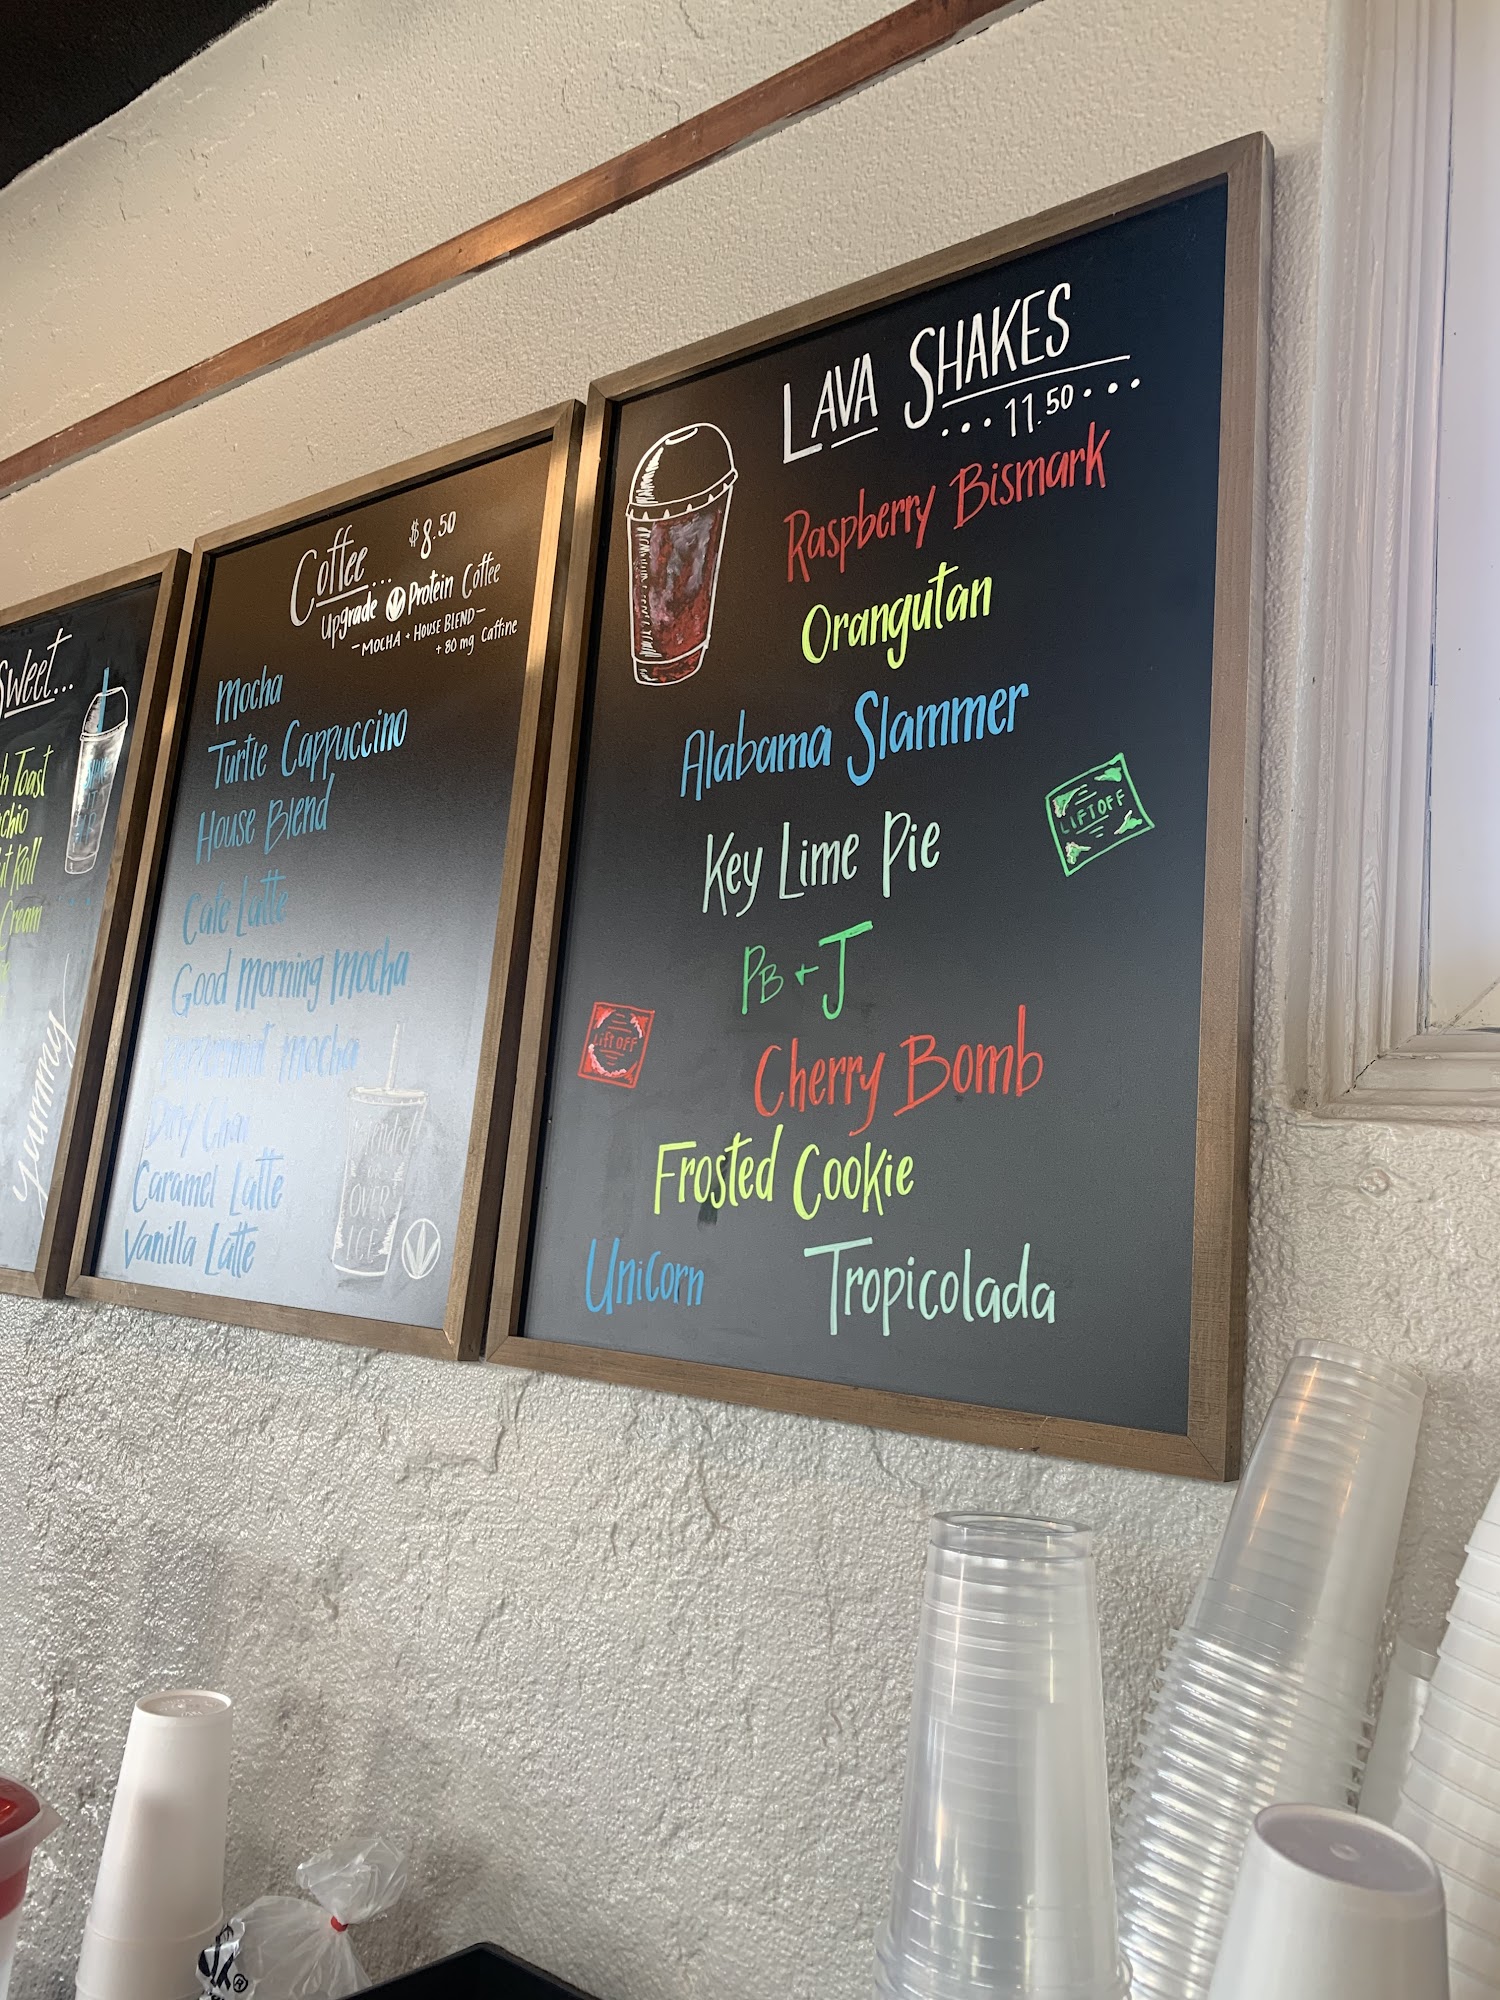 Sweet...
Toast
Roll
Cream
yummy
Coffee... $8.50
Upgrade Protein Coffee
- MOCHA + HOUSE BLEND -
+ 80 mg Caffine
Mocha
Turtle Cappuccino
House Blend
Cafe Latte
Good Morning Mocha
Peppermint Mocha
Dirty Chai
Caramel Latte
Vanilla Latte
Blended
OVER
ICE
LAVA SHAKES
...11.50...
Raspberry Bismark
Orangutan
Alabama Slammer
Key Lime Pie
LIFTOFF
PB + J
Lift OFF
Cherry Bomb
Frosted Cookie
Unicorn Tropicolada